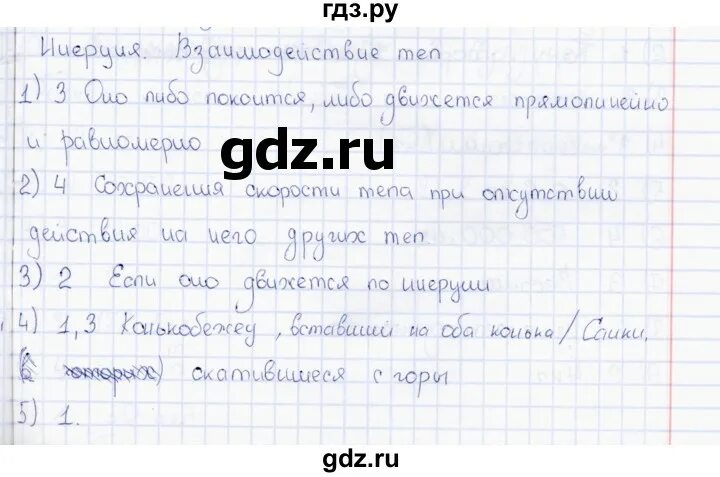 гдз.ру
Инерция. Взаимодействие тел
1) 3 Оно либо покоится, либо движется прямолинейно
и равномерно
gdz.ru
2) 4 Сохранения скорости тела при отсутствии
действия на него других тел.
3) 2 Если оно движется по инерции
4) 1,3 Конькобежец, вставший на оба конька / Санки,
скатившиеся с горы
5) 1.
gdz.ru